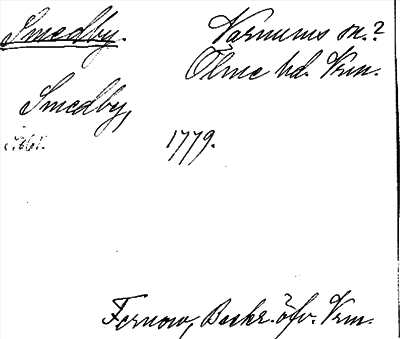 Smedby. Varnums sn.?
Ölme hd. Vrm.
Smedby,
1779.
Fernow, Beskr. öfv. Vrm.